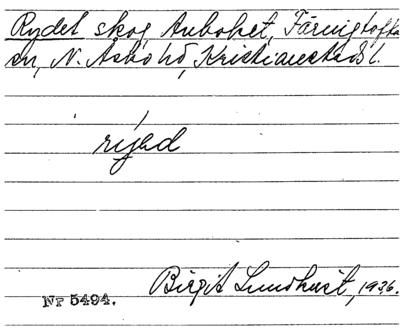 Rydet skog Anboket, Färingtofta
sn, N. Åsbo hd, Kristianstads l.
rýed
Birgit Lundkvist, 1936.
Nr 5494.